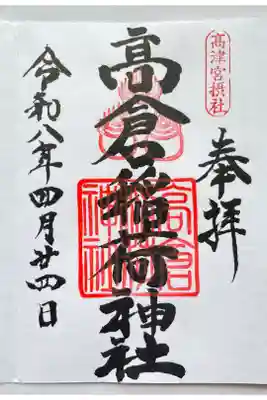 高津宮摂社
奉拝
高倉稲荷神社
高倉稲荷神社
令和八年四月廿四日